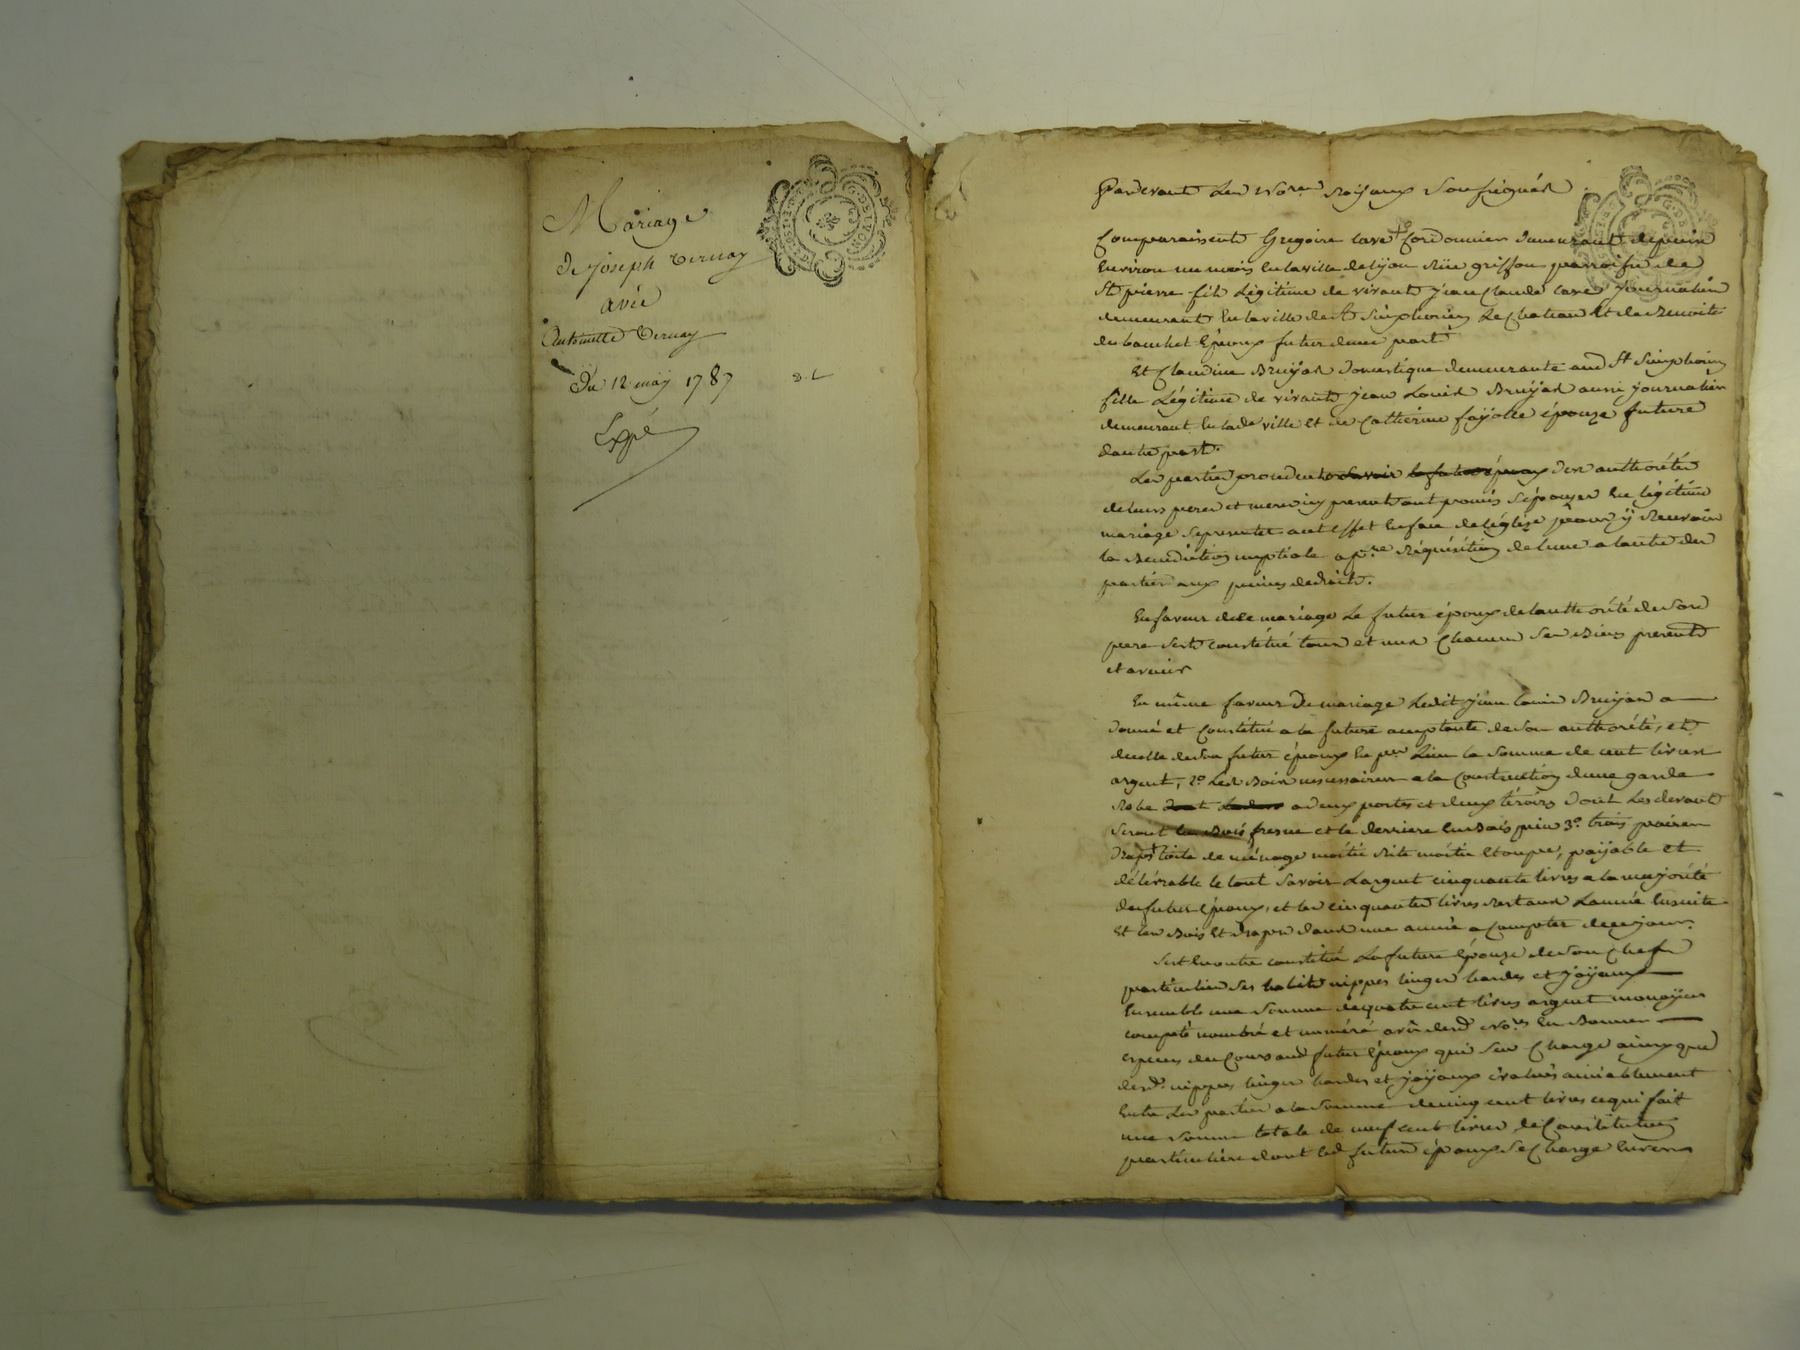 Mariage
de joseph Vernay
avec
Antoinette Vernay
Du 12 may 1787
Expé
Pardevant Les No.res Royaux Soussignés
Comparaissent Gregoire Cordonnier demeurant depuis
Environ un mois En la ville de Lyon Rüe griffon parroisse de
St pierre fils Légitime de vivant jean Claude journalier
demeurant En la ville de St Simphorien Le Chateau Et de Benoite
du bouchet Epoux futur dune part
Et Claudine Bruÿas Domestique demeurante aud St Simphorien
fille Légitime de vivant jean Louis Bruÿas aussi journalier
demeurant En lade ville Et de Catherine faÿolle épouze future
dautre part.
Les parties procedentes Savoir le futur époux des authorités
de leurs peres et meres icy present ont promis Sépouzer En légitime
mariage Se presenter a cet effet En face de Léglize pour ÿ Recevoir
la Benediction nuptiale a pre Réquisition de lune a lautre des
parties aux peines de droit.
En faveur de ce mariage Le futur époux de lauthorité de Son
pere Sest constitué tous et uns Chacun Ses Biens presents
et avenir
En même faveur De mariage Ledit jean Louis Bruyas a
donné et Constitué a la future acceptante de Son authorité, et
de celle de Son futur époux En per Lieu la Somme de cent livres
argent, 2º Les Bois necessaires a la Construction dune garde
Robe a deux portes et deux tiroirs dont Les devants
Seront fresne et le derriere En Bois pin 3º. trois paires
Draps toile de ménage moitié Rite moitié Etoupe, paÿable et
délivrable le tout Savoir Largent cinquante livres a la majorité
du futur Epoux, et les cinquantes livres Restans Lannée Ensuite
Et les Bois Et draps dans une année a Compter de ce jour.
Sest En outre constitué La future Epouze de Son Chef
particulier Ses habits nippes linges hardes et joÿaux
Ensemble une Somme de quatre cent livres argent monoÿé
compté nombré et numéré a vû desd. No.res En Bonnes
Espèces du Cours aud futur Epoux qui Sen Charge ainsy que
desd. nippes linges hardes et joÿaux évalués amiablement
Entre Les parties a la Somme de cinq cent livres ce qui fait
une Somme totale de neuf cent livres de Constitution
particuliere dont led futur époux Se Charge Envers